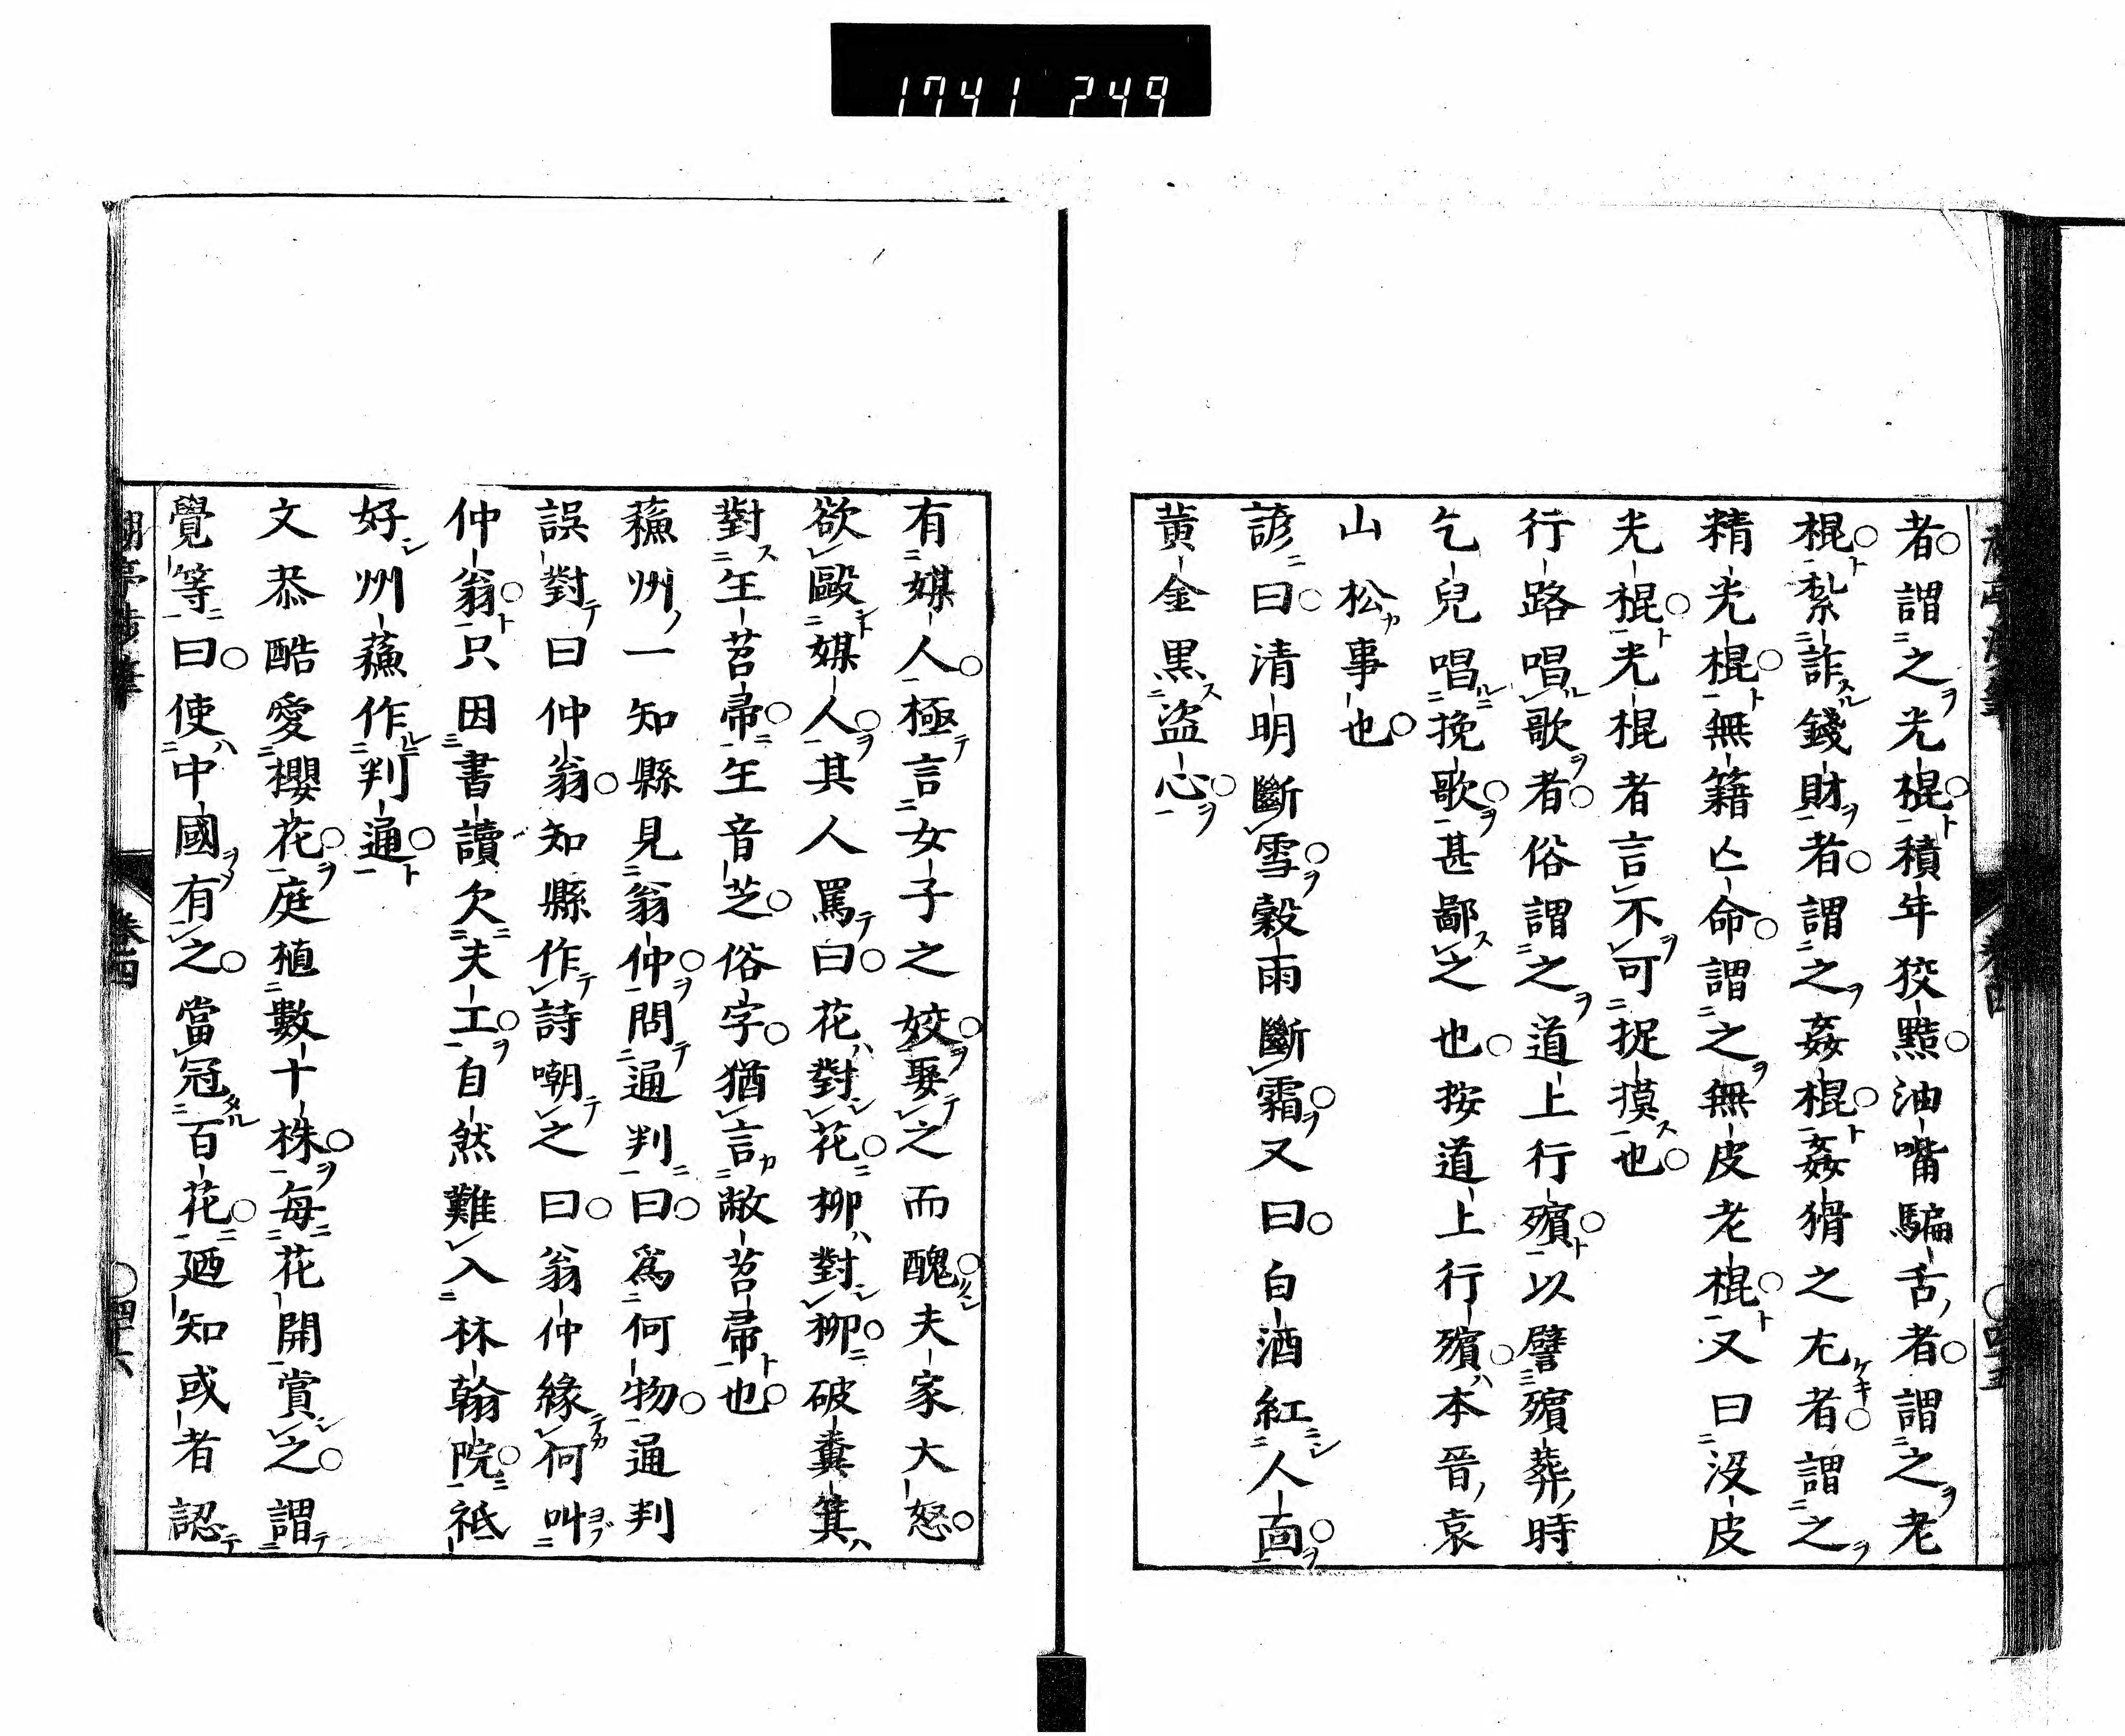 1741 249
者謂之光棍積年狡黠油嘴騙舌者謂之老
棍紮詐錢財者謂之姦棍姦猾之尤者謂之
精光棍無籍亡命謂之無皮老棍又曰沒皮
光棍光棍者言不可捉摸也
行路唱歌者俗謂之道上行殯以譬殯葬時
乞兒唱挽歌甚鄙之也按道上行殯本晉袁
山松事也
諺曰清明斷雪穀雨斷霜又曰白酒紅人面
黃金黑盜心
有媒人極言女子之姣娶之而醜夫家大怒
欲毆媒人其人罵曰花對花柳對柳破糞箕
對生苕帚生音芝俗字猶言敝苕帚也
蘓州一知縣見翁仲問通判曰爲何物通判
誤對曰仲翁知縣作詩嘲之曰翁仲緣何叫
仲翁只因書讀欠夫工自然難入林翰院祗
好州蘓作判通
文恭酷愛櫻花庭植數十株每花開賞之謂
覺等曰使中國有之當冠百花廼知或者認
卷四